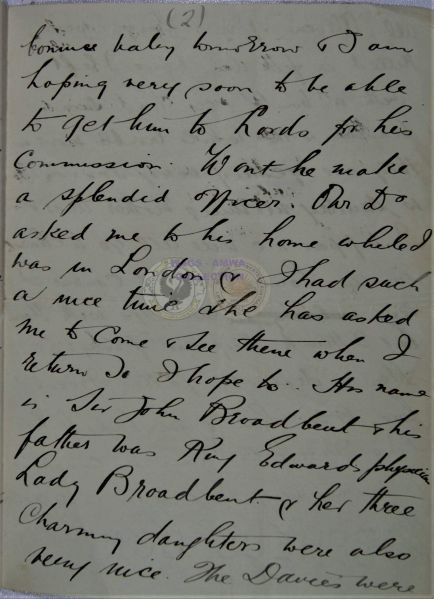 (2)
bonnie baby tomorrow & I am
hoping very soon to be able
to get him to Lords for his
Commission. Wont he make
a splendid officer. Our Dr
asked me to his home whiled I
was in London & I had such
a nice time & he has asked
me to come & see them when I
return So I hope to.. His name
is Sir John Broadbent & his
father was King Edwards physician
Lady Broadbent & her three
charming daughters were also
very nice. The Davies were